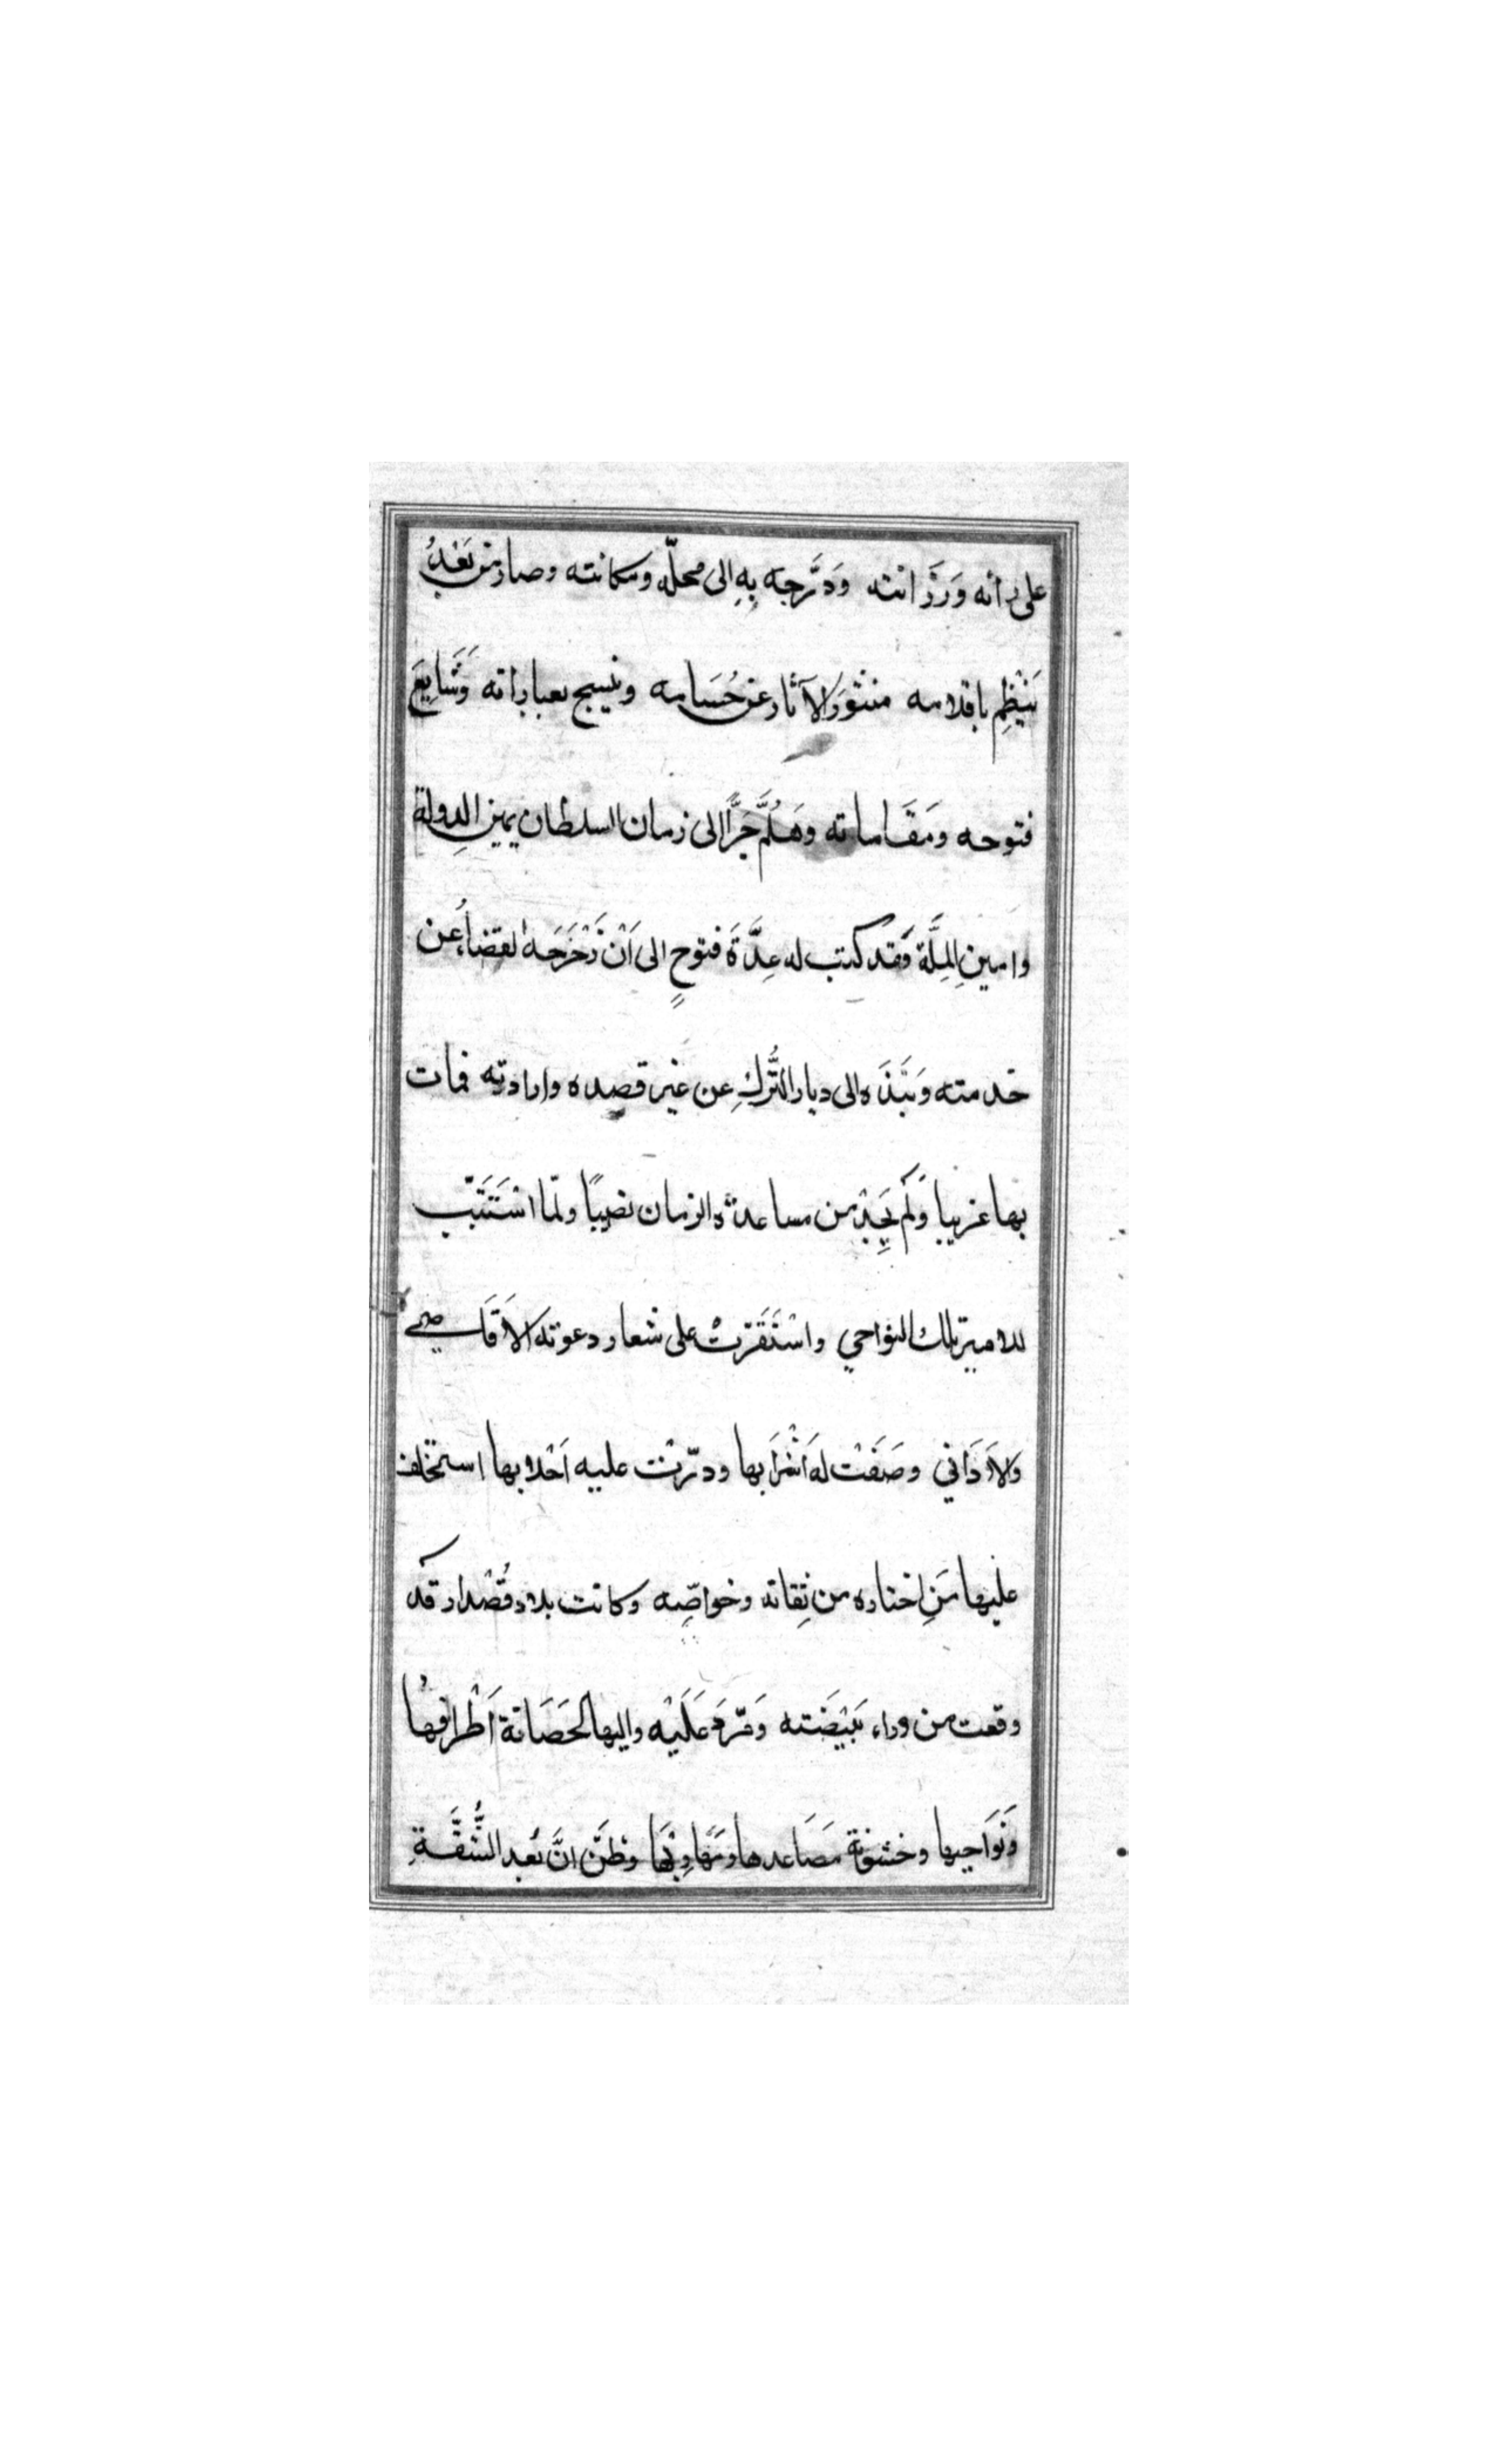 على رأيه وَرَزَانته وَدَرَّجه بِهِ الى محلّه ومكانته وصار من بَعْدُ
يَنْظِم باقلامه منثورَ الآثار عن حُسَامه وينسج بعباراته وَشَايِعَ
فتوحه ومَقَاماته وهَلُمَّ جَرًّا الى زمان السلطان يمين الدولة
وامينِ المِلَّة فَقد كتب له عِدَّةَ فتوحٍ الى اَنْ زَحْزَحَه القضاءُ عن
خدمته وَنَبَذَه الى ديار التُّركِ عن غير قصده وارادته فمات
بها غريبا وَلَم يَجِدْ من مساعدة الزمان نصيبًا ولمّا اسْتَتَبّ
للامير تلك النواحي واسْتَقَرّتْ على شعار دعوته الاَقَاصي
والاَدَاني وصَفَتْ له اَشْرَابها ودرّتْ عليه اَحْلابها استخلف
عليها مَنِ اختاره من ثِقاته وخواصِّه وكانت بلاد قُصْدار قد
وقعت من وراء بَيْضَته وَتمرّد عَلَيْه واليها لحَصَانة اَطْرافِها
وَنَوَاحيها وخشونة مَصَاعدها ومَهَاوِيْها وظَنّ انَّ بُعد الشُّقَّةِ